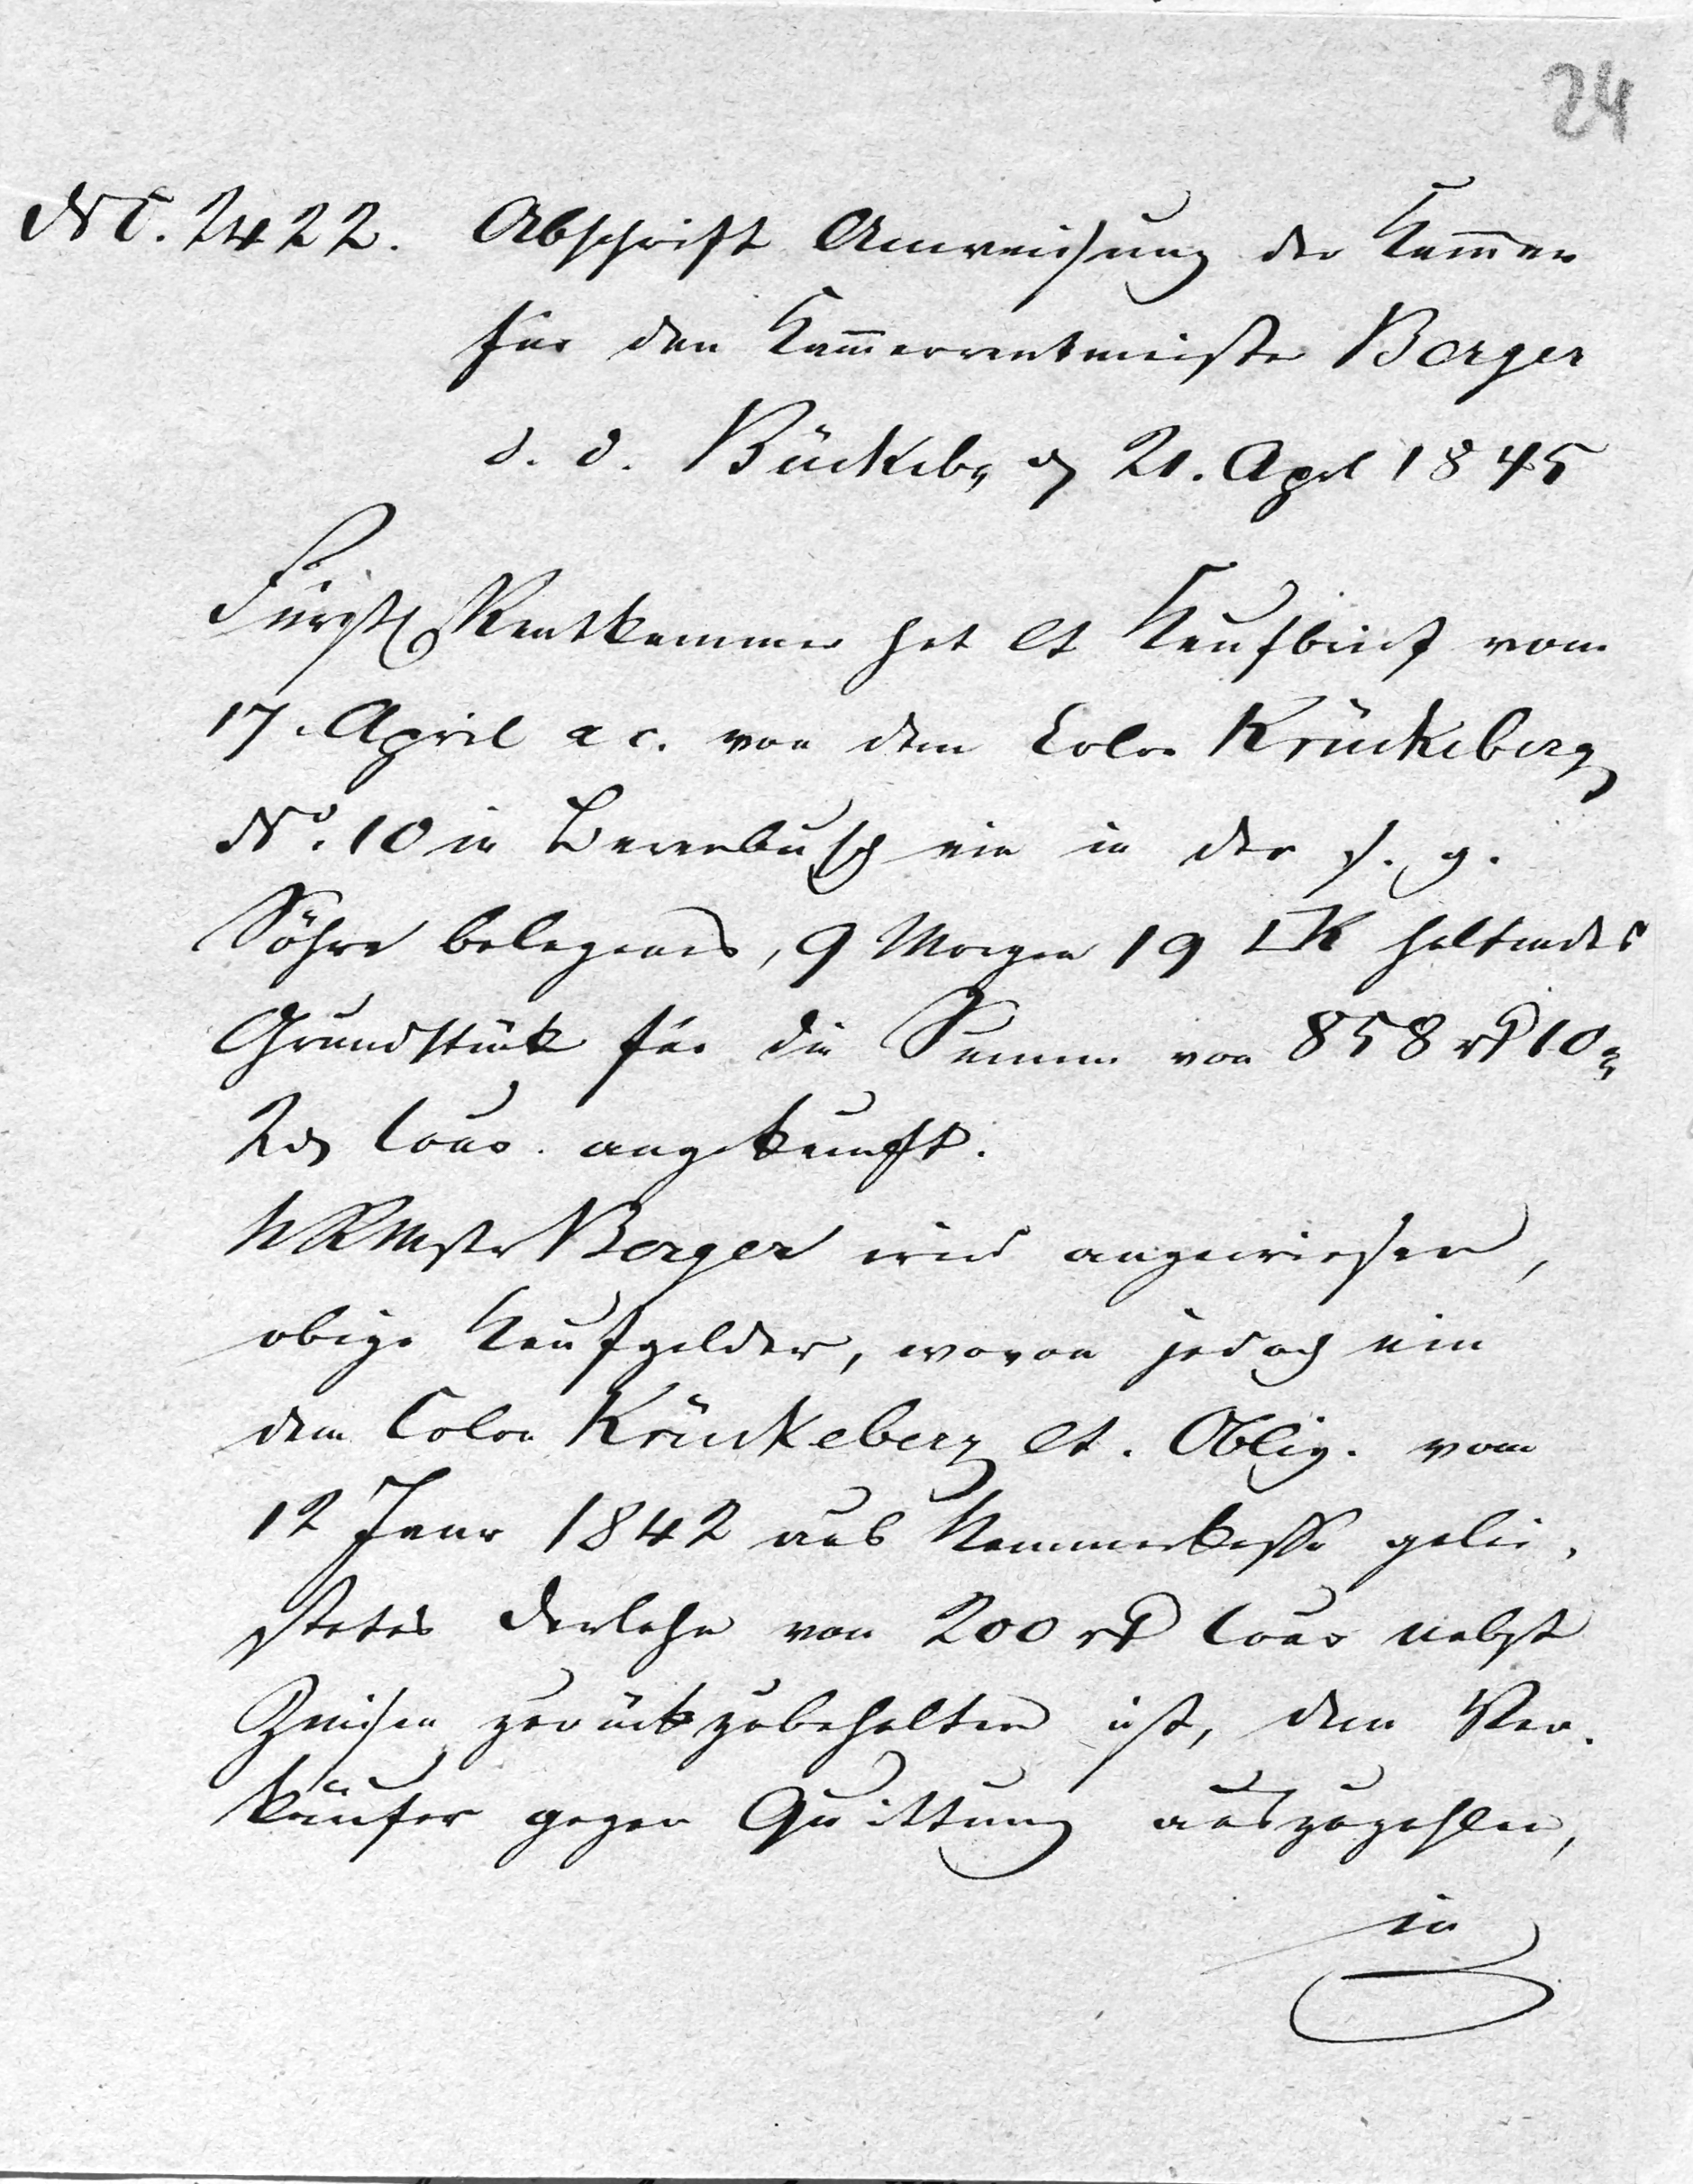 24
NC. 2422. Abschrift Anweisung der Kam̅er
für den Kam̅errentmeister Berger
d. d. Bückebg d 21. Apr 1845
Fürstl Rentkammer hat lt Kaufbrief vom
17. April a c. von dem Colon Krückeberg
No. 10 in Berenbusch ein in der s. g.
Söhre belegenes, 9 Morgen 19 □R haltendes
Grundstück für die Summe von 858 rt 10
2 Cour. angekauft.
KRMstr Berger wird angewiesen,
obige Kaufgelder, wovon jedoch ein
dem Colon Krückeberg lt. Oblig. vom
12 Janr 1842 aus Kammerkasse gelei-
stetes Darlehn von 200 rt Cour nebst
Zinsen zurückzubehalten ist, dem Ver-
käufer gegen Quittung auszuzahlen,
in